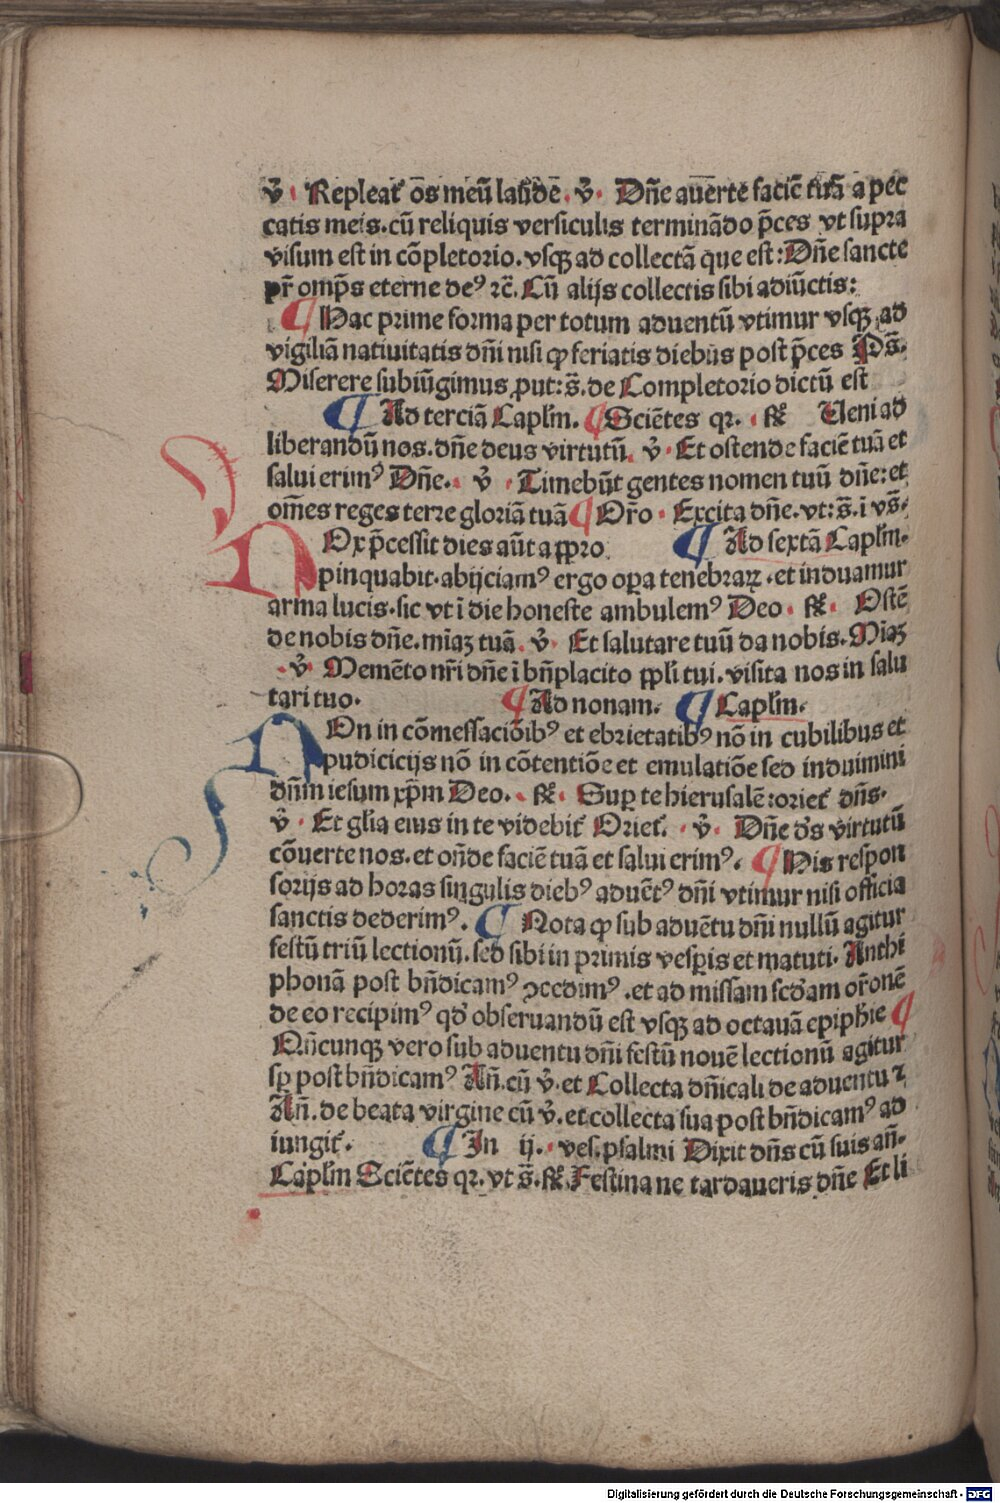 v̄ · Repleat᷑ os meū laude. v̄ · Dn̄e auerte faciē tuā a pec
catis meis. cū reliquis versiculis terminādo p̄ces vt supra
visum est in cōpletorio. vsqꝫ ad collectā que est: Dn̄e sancte
pr̄ omp̄s eterne deꝰ ⁊c̄. Cū alijs collectis sibi adiūctis:
¶ Hac prime forma per totum aduentū vtimur vsqꝫ ad
vigiliā natiuitatis dn̄i nisi ꝙ feriatis diebus post p̄ces Ps̄.
Miserere subiūgimus ꝓut: s̄. de Completorio dictū est
¶ Ad terciā Capl̄m. ¶ Sciētes qꝛ. · ℟ Ueni ad
liberandū nos. dn̄e deus virtutū. v̄ · Et ostende faciē tuā et
salui erimꝰ Dn̄e. · v̄ · Timebūt gentes nomen tuū dn̄e: et
om̄es reges terre gloriā tuā ¶ Or̄o · Excita dn̄e. vt: s̄. ī vs̄.
NOx p̄cessit dies aūt aꝓpro ¶ Ad sextā Capl̄m.
pinquabit. abijciamꝰ ergo oꝑa tenebraꝝ. et induamur
arma lucis. sic vt ī die honeste ambulemꝰ Deo · ℟ · Ostē
de nobis dn̄e. miaꝫ tuā. v̄ · Et salutare tuū da nobis. Miaꝫ
· v̄ · Memēto nr̄i dn̄e ī bn̄placito ppl̄i tui. visita nos in salu
tari tuo. ¶ Ad nonam. ¶ Capl̄m.
NOn in cōmessaciōibꝰ et ebrietatibꝰ nō in cubilibus et
pudicicijs nō in cōtentiōe et emulatiōe sed induimini
dn̄m iesum xp̄m Deo. · ℟ · Suꝑ te hierusalē: oriet᷑ dn̄s.
v̄ · Et gl̄ia eius in te videbit᷑ Oriet᷑. · v̄ · Dn̄e ds̄ virtutū
cōuerte nos. et on̄de faciē tuā et salui erimꝰ. ¶ His respon
sorijs ad horas singulis diebꝰ aduētꝰ dn̄i vtimur nisi officia
sanctis dederimꝰ. ¶ Nota ꝙ sub aduētu dn̄i nullū agitur
festū triū lectionū. sed sibi in primis vesꝑis et matuti. Anthi
phonā post bn̄dicamꝰ ꝯcedimꝰ. et ad missam scd̄am or̄onē
de eo recipimꝰ qd̄ obseruandū est vsqꝫ ad octauā epiph̄ie ¶
Qn̄cunqꝫ vero sub aduentu dn̄i festū nouē lectionū agitur
sꝑ post bn̄dicamꝰ An̄. cū v̄. et Collecta dn̄icali de aduentu ⁊
An̄. de beata virgine cū v̄. et collecta sua post bn̄dicamꝰ ad
iungit᷑. ¶ In ij. · ves. psalmi Dixit dn̄s cū suis an̄.
Capl̄m Sciētes qꝛ. vt s̄. ℟. Festina ne tardaueris dn̄e Et li
Digitalisierung gefördert durch die Deutsche Forschungsgemeinschaft - DFG